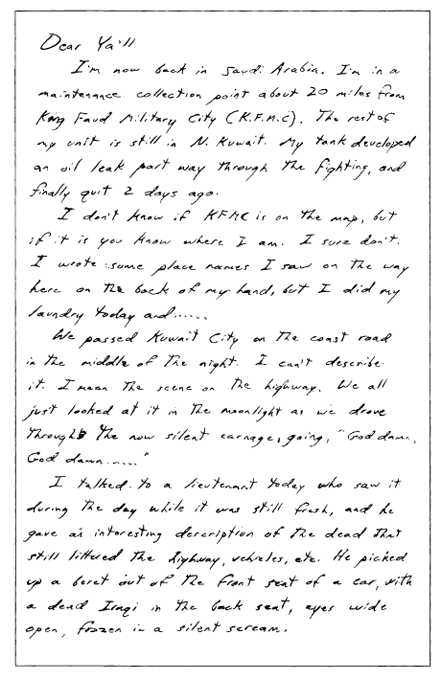 Dear Ya'll
I'm now back in Saudi Arabia. I'm in a
maintenance collection point about 20 miles from
King Faud Military City (K.F.M.C). The rest of
my unit is still in N. Kuwait. My tank developed
an oil leak part way through the fighting, and
finally quit 2 days ago.
I don't know if KFMC is on the map, but
if it is you know where I am. I sure don't.
I wrote some place names I saw on the way
here on the back of my hand, but I did my
laundry today and......
We passed Kuwait City on the coast road
in the middle of the night. I can't describe
it. I mean the scene on the highway. We all
just looked at it in the moonlight as we drove
through the now silent carnage, going, "God damn,
God damn....."
I talked to a lieutenant today who saw it
during the day while it was still fresh, and he
gave an interesting description of the dead that
still littered the highway, vehicles, etc. He picked
up a beret out of the front seat of a car, with
a dead Iraqi in the back seat, eyes wide
open, frozen in a silent scream.